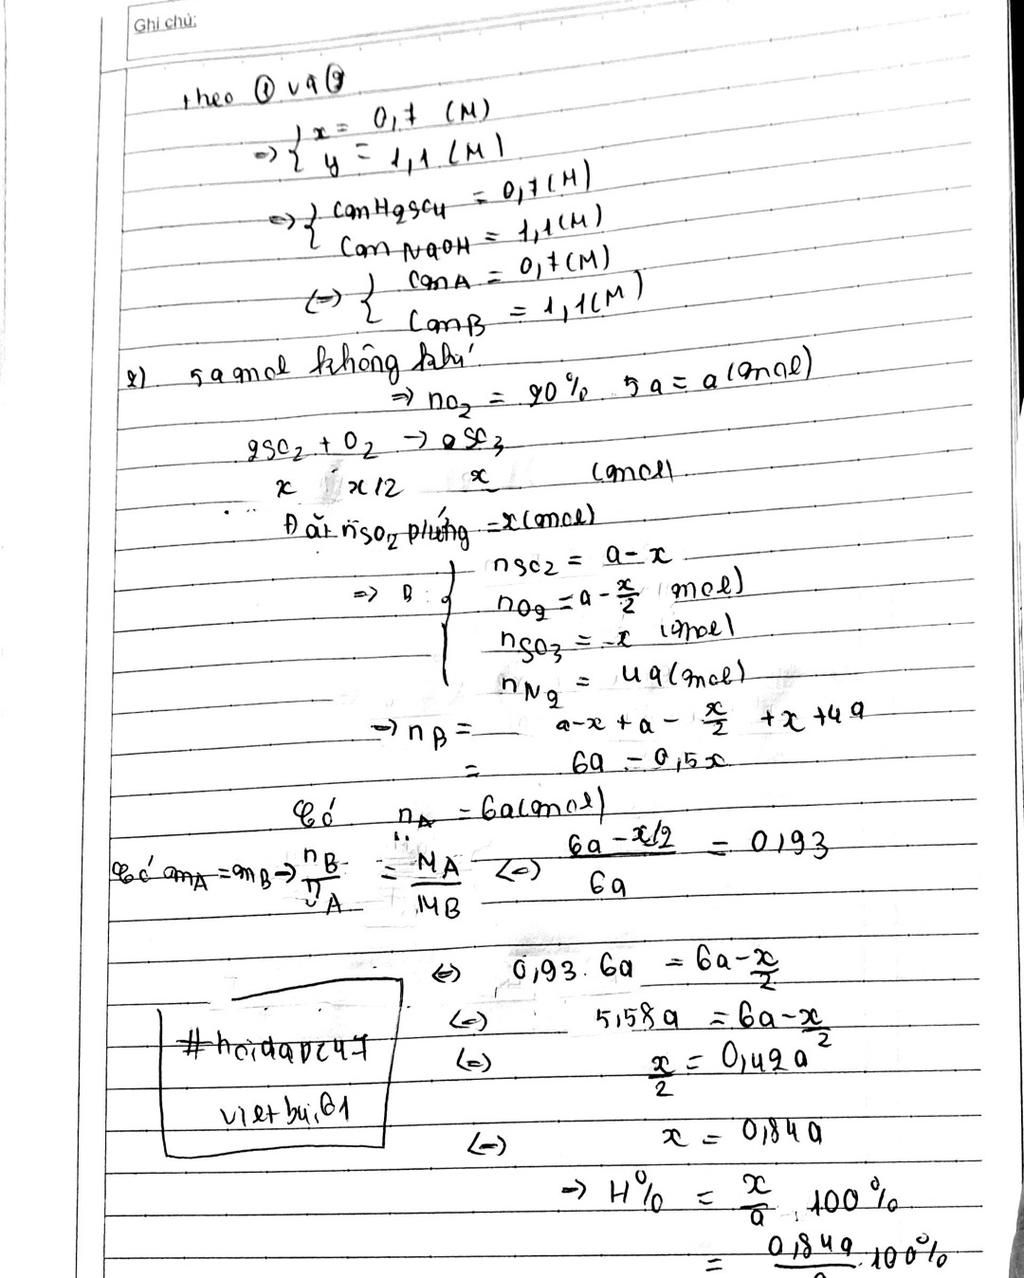 Ghi chú:
theo ① và ②
=> { x = 0,7 (M)
y = 1,1 (M)
=> { CmH2SO4 = 0,7 (M)
CmNaOH = 1,1 (M)
(=) { CmA = 0,7 (M)
CmB = 1,1 (M)
2) 5a mol không khí
=> nO2 = 20% . 5a = a (mol)
2SO2 + O2 -> 2SO3
x x/2 x (mol)
Đặt nSO2 phứng = x (mol)
=> B { nSO2 = a - x
nO2 = a - x/2 (mol)
nSO3 = x (mol)
nN2 = 4a (mol)
=> nB = a - x + a - x/2 + x + 4a
= 6a - 0,5x
Có nA = 6a (mol)
Có mA = mB -> nB/nA = MA/MB (=) (6a - x/2)/6a = 0,93
(=) 0,93 . 6a = 6a - x/2
(=) 5,58a = 6a - x/2
(=) x/2 = 0,42a
(=) x = 0,84a
-> H% = x/a . 100%
= 0,84a/a . 100%
#hoidap247
vietbui81